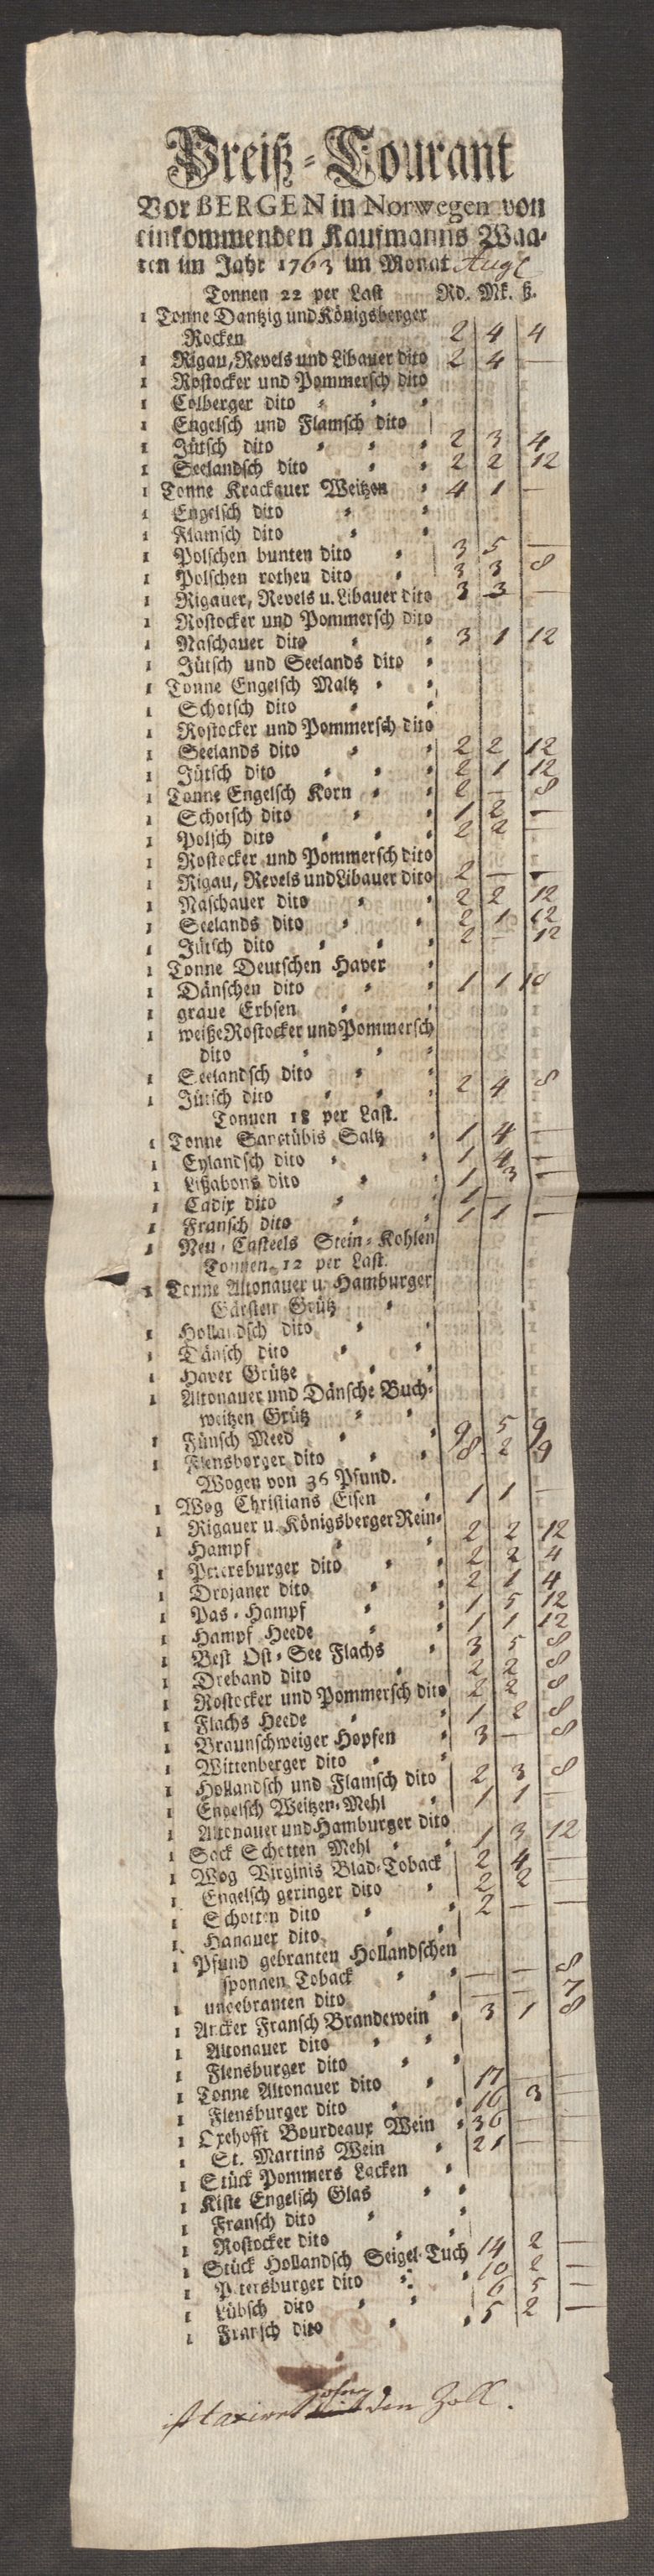 Preiß-Courant
Vor BERGEN in Norwegen von
einkommenden Kaufmanns Waa-
ren im Jahr 1763 im Monat Aug
Tonnen 22 per Last Rd. Mk. ß.
1 Tonne Dantzig und Königsberger
Rocken 2 4 4
1 Rigau, Revels und Libauer dito 2 4 —
1 Rostocker und Pommersch dito
1 Colberger dito
1 Engelsch und Flamsch dito
1 Jütsch dito 2 3 4
1 Seelandsch dito 2 2 12
1 Tonne Krackauer Weitzen 4 1 —
1 Engelsch dito
1 Flamsch dito
1 Polschen bunten dito 3 5 —
1 Polschen rothen dito 3 3 8
1 Rigauer, Revels u. Libauer dito 3 3 —
1 Rostocker und Pommersch dito
1 Naschauer dito 3 1 12
1 Jütsch und Seelands dito
1 Tonne Engelsch Maltz
1 Schotsch dito
1 Rostocker und Pommersch dito
1 Seelands dito 2 2 12
1 Jütsch dito 2 1 12
1 Tonne Engelsch Korn 2 — 8
1 Schotsch dito 1 2 —
1 Polsch dito 2 2 —
1 Rostocker und Pommersch dito
1 Rigau, Revels und Libauer dito 2 — —
1 Naschauer dito 2 2 12
1 Seelands dito 2 1 12
1 Jütsch dito 2 — 12
1 Tonne Deutschen Haver
1 Dänschen dito 1 1
1 graue Erbsen
1 weiße Rostocker und Pommersch
dito
1 Seelandsch dito
1 Jütsch dito 2 4 8
Tonnen 18 per Last.
1 Tonne Sanctübis Saltz 1 4 —
1 Eylandsch dito 1 4 —
1 Lißabons dito 1 3 —
1 Cadix dito 1 — —
1 Fransch dito 1 1 —
1 Neu-Casteels Stein-Kohlen
Tonnen 12 per Last.
1 Tonne Altonauer u. Hamburger
Gärsten Grütz
1 Hollandsch dito
1 Dänsch dito
1 Haver Grütze
1 Altonauer und Dänsche Buch-
weitzen Grütz
1 Fünsch Meed 9 5 9
1 Flensborger dito 8 2 9
Wogen von 36 Pfund.
1 Wog Christians Eisen 1 1 —
1 Rigauer u. Königsberger Rein-
Hampf 2 2 12
1 Petersburger dito 2 2 4
1 Drojaner dito 2 1 4
1 Pas-Hampf 1 5 12
1 Hampf Heede 1 1 12
1 Best Ost-See Flachs 3 5 8
1 Dreband dito 2 2 8
1 Rostocker und Pommersch dito 2 2 8
1 Flachs Heede 1 2 8
1 Braunschweiger Hopfen 3 — 8
1 Wittenberger dito
1 Hollandsch und Flamsch dito 2 3 8
1 Engelsch Weitzen-Mehl 1 1 —
1 Altonauer und Hamburger dito
1 Sack Schotten Mehl 1 3 12
1 Wog Virginis Blad-Toback 2 4 —
1 Engelsch geringer dito 2 2 —
1 Schotten dito 2 — —
1 Hanauer dito
1 Pfund gebranten Hollandschen
sponnen Toback — — 8
1 ungebranten dito — — 7
1 Ancker Fransch Brandewein 3 1 8
1 Altonauer dito
1 Flensburger dito
1 Tonne Altonauer dito 17 —
1 Flensburger dito 16 3 —
1 Oxehofft Bourdeaux Wein 36 — —
1 St. Martins Wein 21 — —
1 Stück Pommers Lacken
1 Kiste Engelsch Glas
1 Fransch dito
1 Rostocker dito
1 Stück Hollandsch Seigel-Tuch 14 2 —
1 Petersburger dito 10 2 —
1 Lübsch dito 6 5 —
1 Fransch dito 5 2 —
ohne
ist taxiret den Zoll.